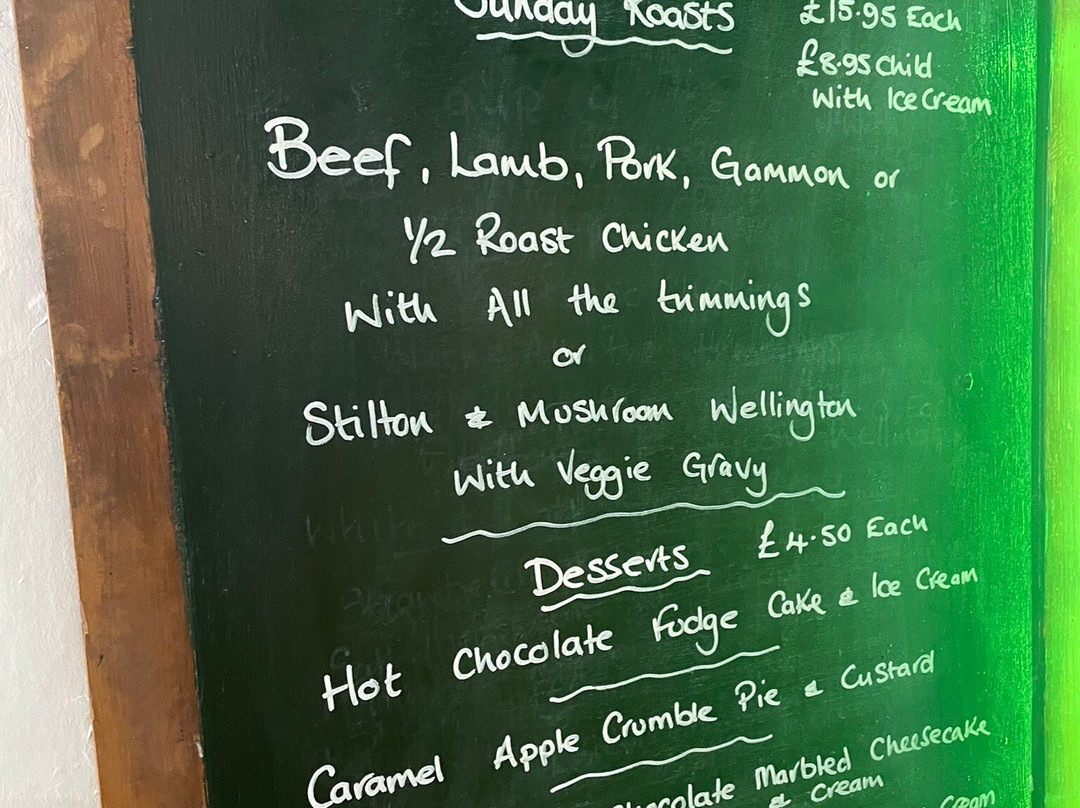 Sunday Roasts £15.95 Each
£8.95 Child
With Ice Cream
Beef, Lamb, Pork, Gammon or
1/2 Roast Chicken
With All the trimmings
or
Stilton & Mushroom Wellington
With Veggie Gravy
Desserts £4.50 Each
Hot Chocolate Fudge Cake & Ice Cream
Caramel Apple Crumble Pie & Custard
Chocolate Marbled Cheesecake
& Cream
Cream